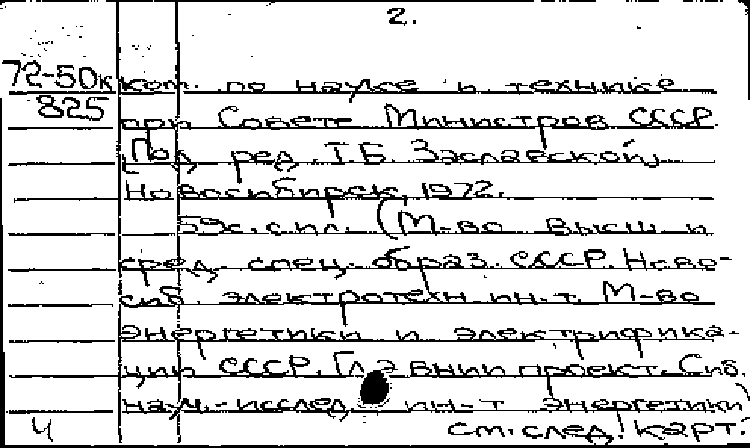 2.
72-50к ком. по науке и технике
825 при Совете Министров СССР.
[Под ред. Т.Б. Заславской].
Новосибирск, 1972.
59с. с ил. (М-во высш. и
сред. спец. образ. СССР. Ново-
сиб. электротехн. ин-т. М-во
энергетики и электрифика-
ции СССР. Гл ВНИИпроект. Сиб.
науч.-исслед. ин-т энергетики)
Ч см. след. карт.